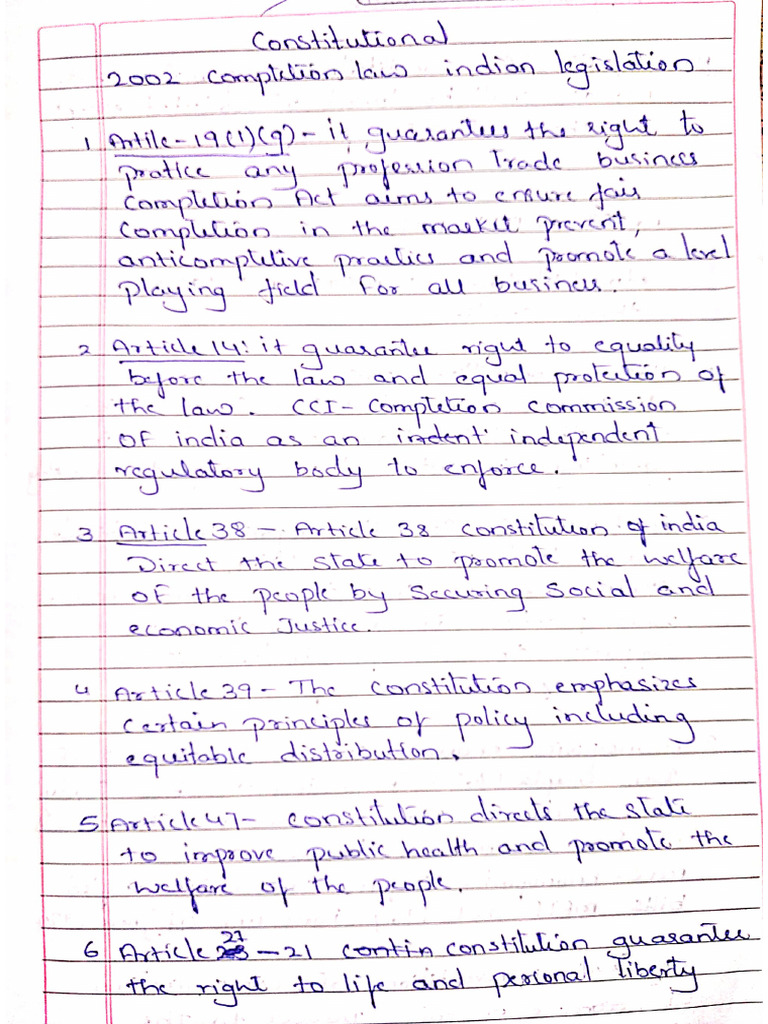 Constitutional
2002 Completion law indian legislation
1 Artile - 19(1)(g) - it guarantees the right to
pratice any profession Trade business
Completion Act aims to ensure fair
Completion in the market prevent,
anticompletive practices and promote a level
playing field for all business.
2 Article 14: it guarantee right to equality
before the law and equal protection of
the law. CCI - Completion commission
of india as an indent independent
regulatory body to enforce.
3 Article 38 - Article 38 constitution of india
Direct the state to promote the welfare
of the people by securing social and
economic Justice.
4 Article 39 - The constitution emphasizes
certain principles of policy including
equitable distribution.
5 Article 47 - constitution directs the state
to improve public health and promote the
welfare of the people.
6 Article 21 - 21 contin constitution guarantee
the right to life and personal liberty